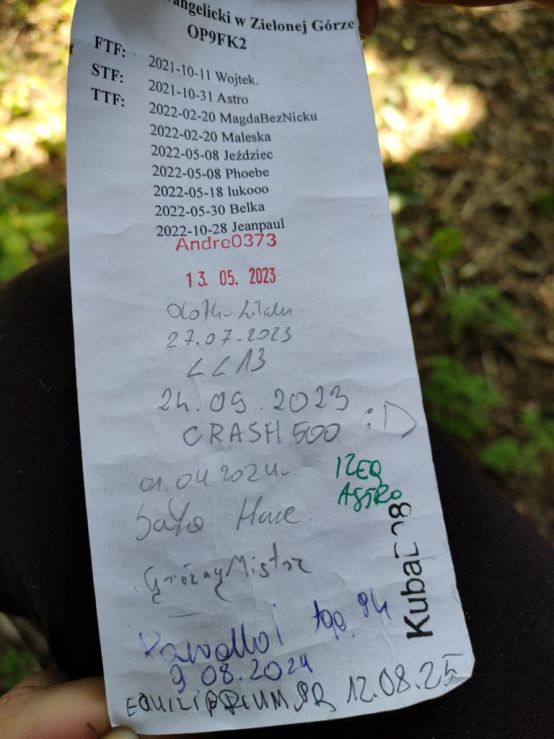 wangelicki w Zielonej Górze
OP9FK2
FTF: 2021-10-11 Wojtek.
STF: 2021-10-31 Astro
TTF: 2022-02-20 MagdaBezNicku
2022-02-20 Maleska
2022-05-08 Jeździec
2022-05-08 Phoebe
2022-05-18 lukooo
2022-05-30 Belka
2022-10-28 Jeanpaul
Andre0373
13. 05. 2023
27.07.2023
LL13
24.09.2023
CRASH500 :D
01.04.2024r.
IZEQ
ASTRO
GróźnyMistrz
9 08.2024
EQUILIBRIUM 12.08.25